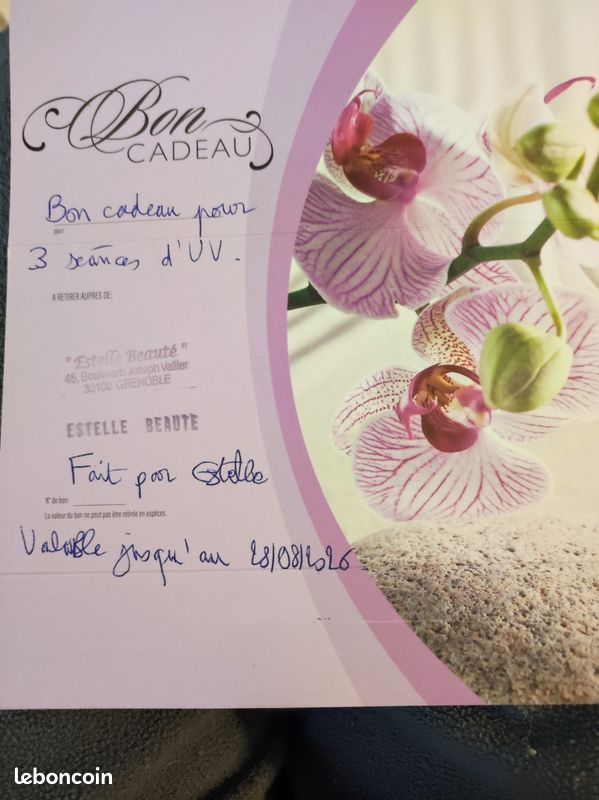 Bon
CADEAU
Bon cadeau pour
pour
3 séances d'UV.
A RETIRER AUPRES DE:
"Estelle Beauté"
45, Boulevard Joseph Vallier
38100 GRENOBLE
ESTELLE BEAUTE
Fait par Estelle
N° de bon:
La valeur du bon ne peut pas être retirée en espèces.
Valable jusqu'au 28/08/2026
leboncoin